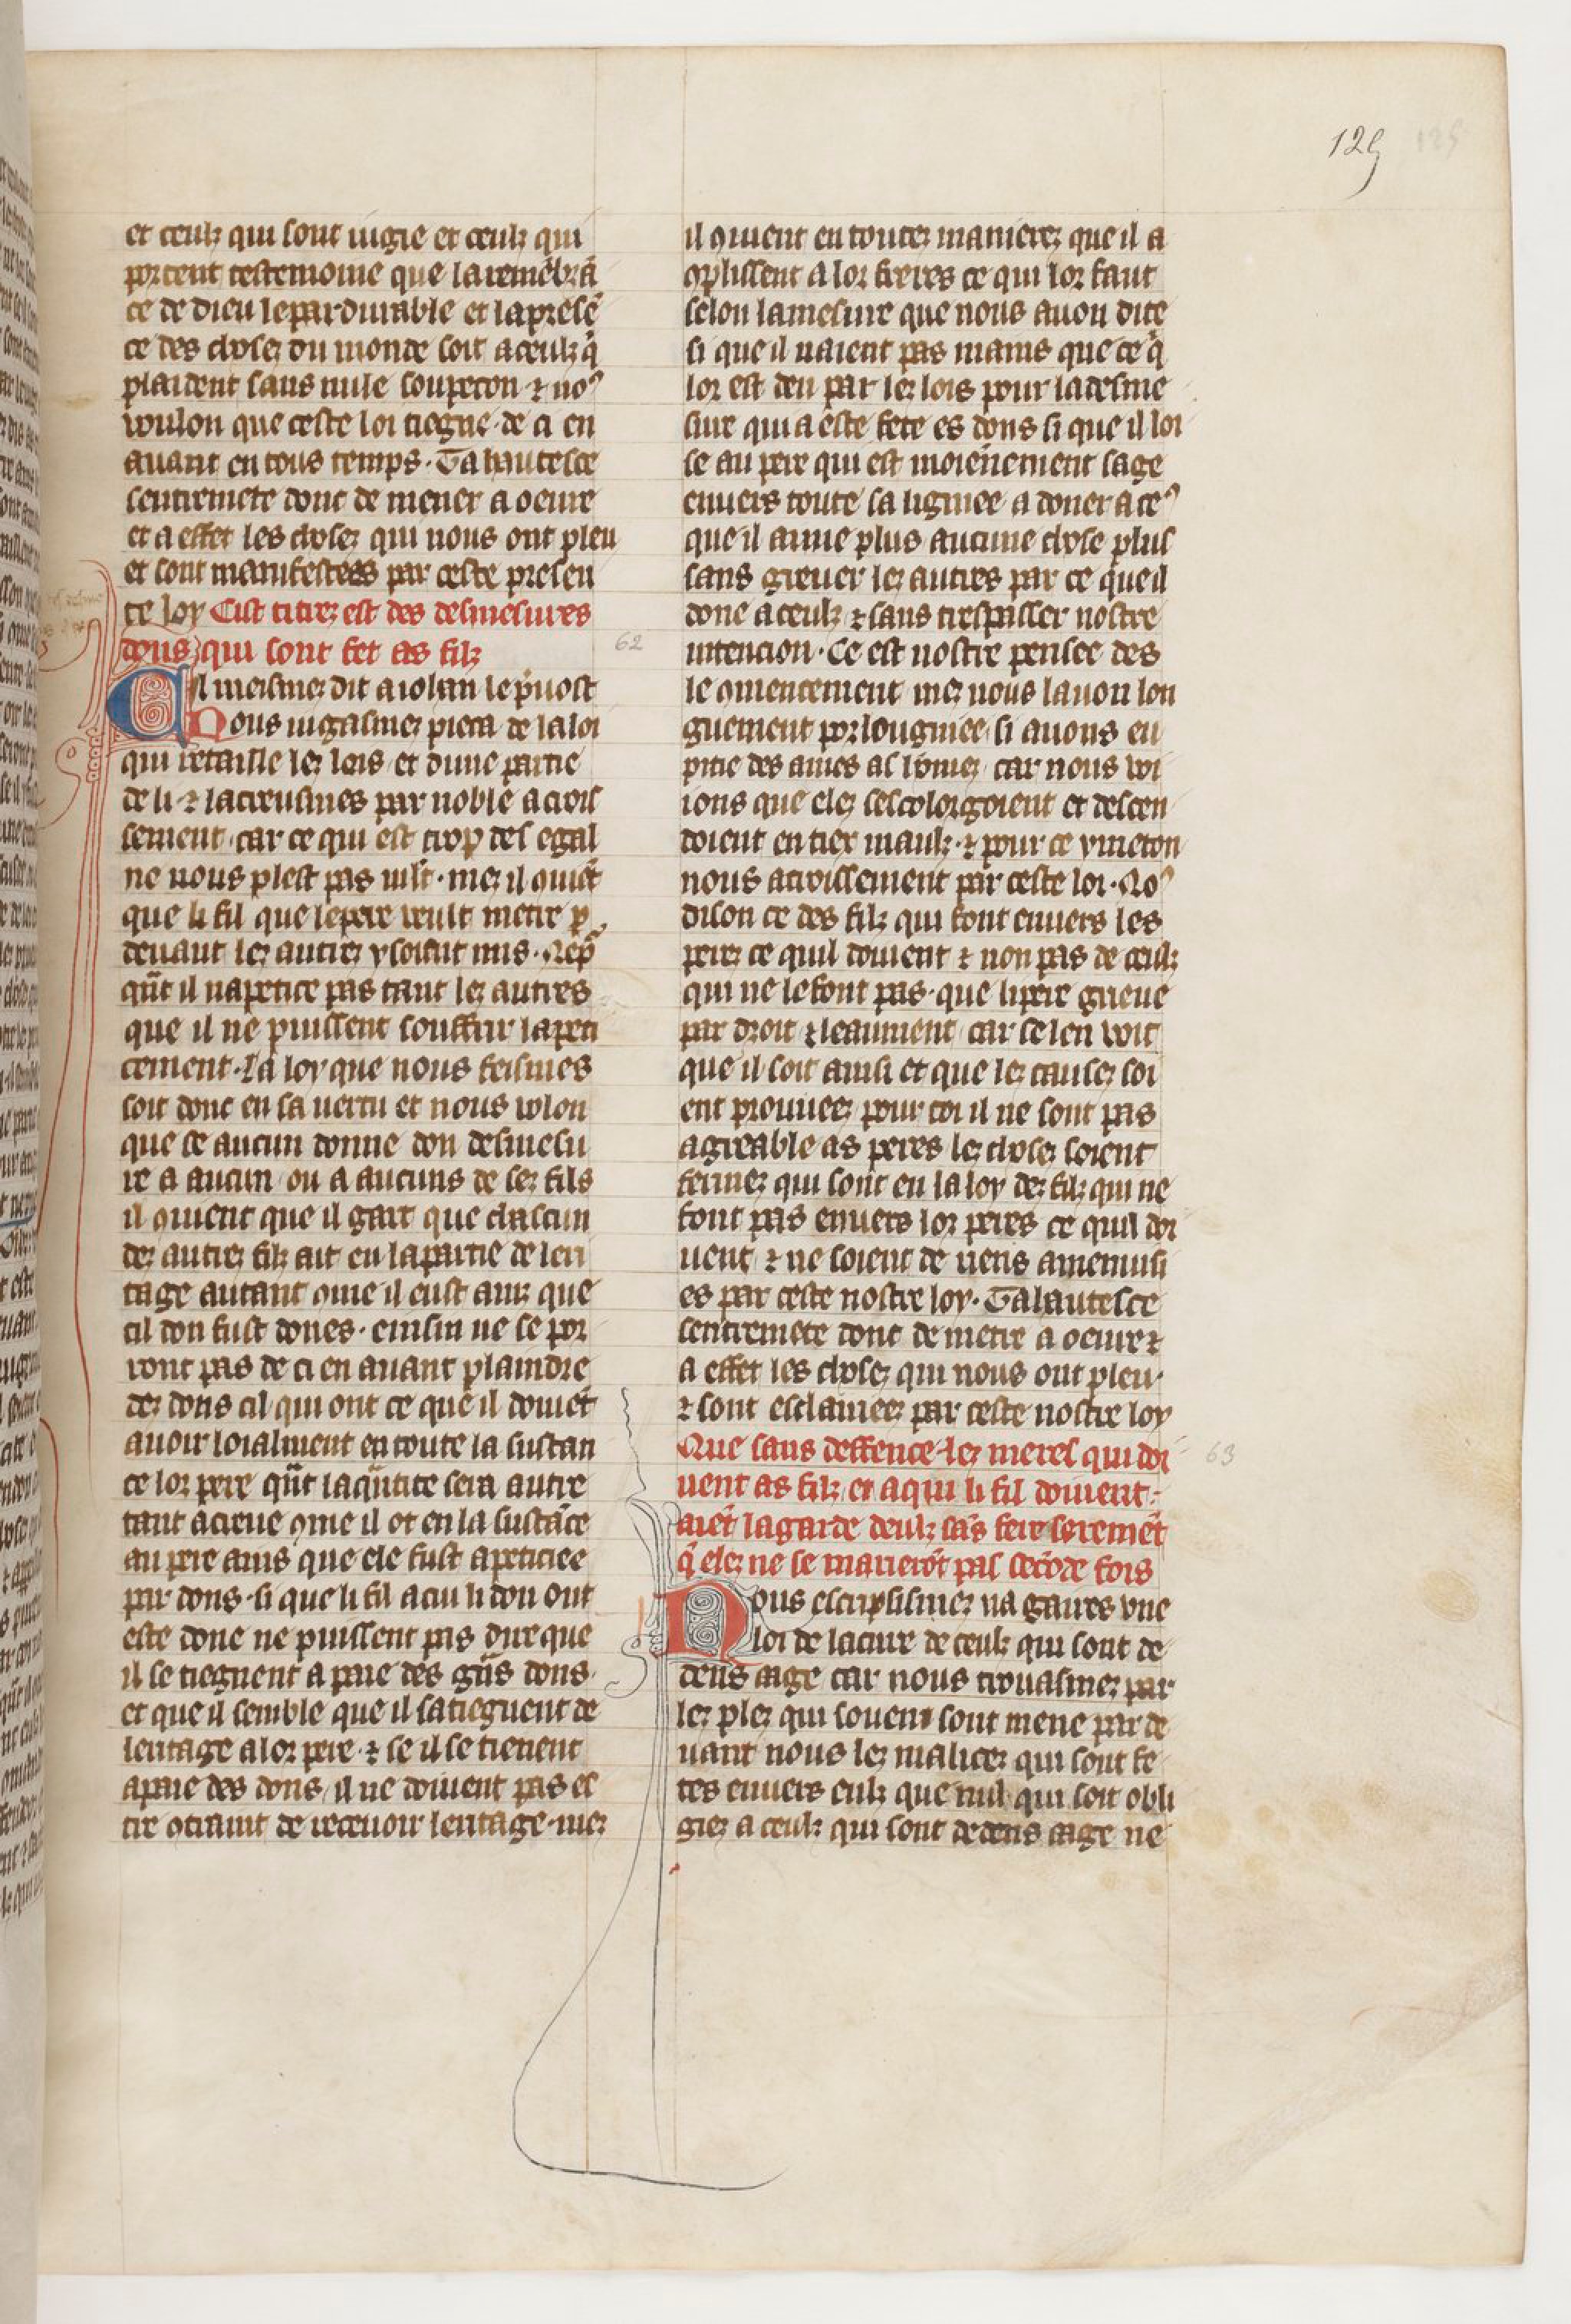 125 125
et ceulz qui sont iugie et ceulz qui
portent testemoine que la remẽbrã
ce de dieu le pardurable et la presẽ
ce des choses du monde soit a ceulz q̃
plaident sans nule soupecon ⁊ noꝰ
voulon que ceste loi tiegne de ci en
auant en tous temps. Ta hautesce
sentremete donc de mener a oeure
et a effet les choses qui nous ont pleu
et sont manifestees par ceste presen
te loy Cist titres est des desmesures
dons qui sont fet as filz
62
Cil meismes dit a iolan le p̃uost
Nous iugasmes pieca de la loi
qui retaille les lois et dune partie
de li ⁊ lacreusmes par noble acrois
sement car ce qui est trop des egal
ne nous plest pas
que li fil que le pere veult metre p
deuant les autres y soient mis.
qũt il napetice pas tant les autres
que il ne puissent souffrir lapeti
cement. La loy que nous feismes
soit donc en sa uertu et nous volon
que se aucun donne don desmesu
re a aucun ou a aucuns de ses fils
il ꝯuient que il gart que chascun
des autres filz ait en la partie de leri
tage autant ꝯme il eust ainz que
cil don fust dones. einsin ne se por
ront pas de ci en auant plaindre
des dons cil qui ont ce que il doiuẽt
auoir loialment en toute la sustan
ce lor pere qũt la qũtite sera autre
tant acreue ꝯme il ot en la sustãce
au pere ains que ele fust apeticiee
par dons. si que li fil a cui li don ont
este done ne puissent pas dire que
il se tiegnent a paie des grãs dons
et que il semble que il satiegnent de
leritage a lor pere. ⁊ se il se tienent
a paie des dons il ne doiuent pas es
tre ꝯtraint de receuoir leritage. mes
il ꝯuient en toutes manieres que il a
ꝯplissent a lor freres ce qui lor faut
selon la mesure que nous auon dite
si que il naient pas mains que ce q̃
lor est deu par les lois pour la desme
sure qui a este fete es dons si que il loi
se au pere qui est moiẽnement sage
enuers toute sa lignee a doner a ceꝰ
que il aime plus aucune chose plus
sans greuer les autres par ce que il
done a ceulz ⁊ sans trespasser nostre
intencion. Ce est nostre pensee des
le ꝯmencement mes nous lauon lon
guement porlongniee. si auons eu
pitie des ames as hõmes. car nous voi
ions que eles sescolorgoient et descen
doient en tiex maulz. ⁊ pour ce y meton
nous acroissement par ceste loi. Noꝰ
dison ce des filz qui font enuers les
peres ce quil doiuent ⁊ non pas de ceulz
qui ne le font pas. que li pere grieue
par droit ⁊ leaument car se len voit
que il soit ainsi et que les causes soi
ent prouuees pour coi il ne sont pas
agreable as peres les choses soient
fermes qui sont en la loy des filz qui ne
font pas enuers lor peres ce quil doi
uent ⁊ ne soient de riens amenuisi
es par ceste nostre loy. Ta hautesce
sentremete dont de metre a oeure ⁊
a effet les choses qui nous ont pleu.
⁊ sont esclairiees par ceste nostre loy
Que sans deffence les meres qui doi
uent as filz et a qui li fil doiuent.
aiẽt la garde deulz sãs fere seremẽt
q̃ eles ne se marierõt pas secõde fois
63
Nous escripsismes na gaires vne
loi de la cure de ceulz qui sont de
dens aage car nous trouasmes par
les ples qui souent sont mene par de
uant nous les malices qui sont fe
tes enuers eulz que nul qui soit obli
giez a ceulz qui sont dedens aage ne